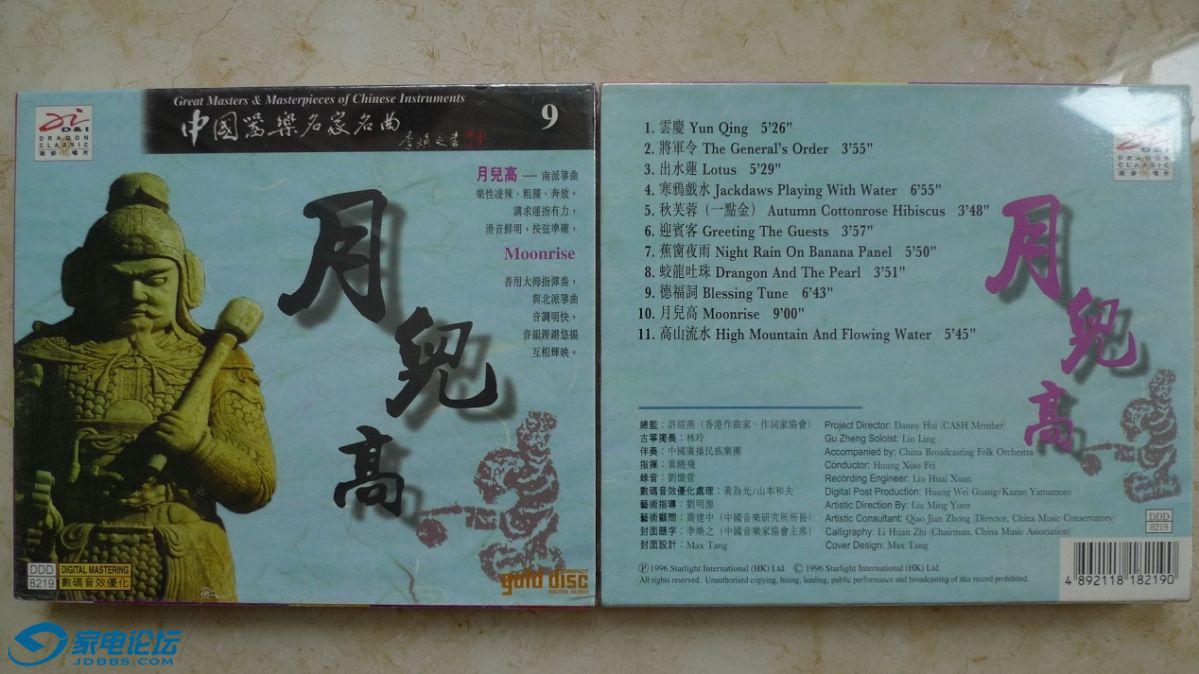 D&I
DRAGON
CLASSIC
Great Masters & Masterpieces of Chinese Instruments
中國器樂名家名曲
李煥之書
9
月兒高 — 南派箏曲
樂性凌辣、粗獷、奔放，
講求運指有力，
滑音鮮明，按弦準確，
Moonrise
善用大拇指彈奏，
與北派箏曲
音調明快，
音韻鏗鏘悠揚
互相輝映，
月兒高
DDD
8219
DIGITAL MASTERING
數碼音效優化
COMPACT
gold disc
DIGITAL AUDIO
家电论坛
JDBBS.COM
1. 雲慶 Yun Qing 5'26"
2. 將軍令 The General's Order 3'55"
3. 出水蓮 Lotus 5'29"
4. 寒鴉戲水 Jackdaws Playing With Water 6'55"
5. 秋芙蓉（一點金） Autumn Cottonrose Hibiscus 3'48"
6. 迎賓客 Greeting The Guests 3'57"
7. 蕉窗夜雨 Night Rain On Banana Panel 5'50"
8. 蛟龍吐珠 Drangon And The Pearl 3'51"
9. 德福詞 Blessing Tune 6'43"
10. 月兒高 Moonrise 9'00"
11. 高山流水 High Mountain And Flowing Water 5'45"
D&I
DRAGON
CLASSIC
月兒高
總監：許經燕（香港作曲家、作詞家協會） Project Director: Danny Hui (CASH Member)
古箏獨奏：林玲 Gu Zheng Soloist: Lin Ling
伴奏：中國廣播民族樂團 Accompanied by: China Broadcasting Folk Orchestra
指揮：黃曉飛 Conductor: Huang Xiao Fei
錄音：劉懷萱 Recording Engineer: Liu Huai Xuan
數碼音效優化處理：黃為光/山本和夫 Digital Post Production: Huang Wei Guang/Kazuo Yamamoto
藝術指導：劉明源 Artistic Direction By: Liu Ming Yuen
藝術顧問：喬建中（中國音樂研究所所長） Artistic Consultant: Qiao Jian Zhong (Director, China Music Conservatory)
封面題字：李煥之（中國音樂家協會主席） Calligraphy: Li Huan Zhi (Chairman, China Music Association)
封面設計：Max Tang Cover Design: Max Tang
Ⓟ 1996 Starlight International (HK) Ltd. © 1996 Starlight International (HK) Ltd.
All rights reserved. Unauthorised copying, hiring, lending, public performance and broadcasting of this record prohibited.
DDD
8219
4 892118 182190